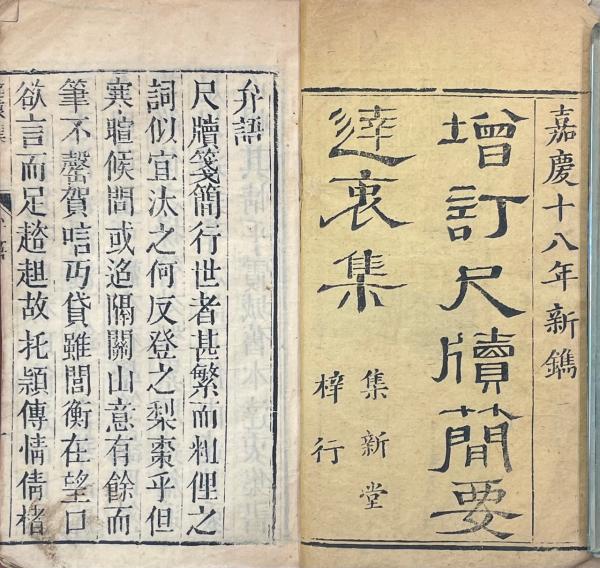 嘉慶十八年新鐫
增訂尺牘簡要
達衷集
集新堂
梓行
弁語
尺牘箋簡行世者甚繁而粗俚之
詞似宜汰之何反登之梨棗乎但
寒暄候問或逺隔關山意有餘而
筆不罄賀唁丐貸雖閭衡在望口
欲言而足趑趄故托頴傳情倩楮